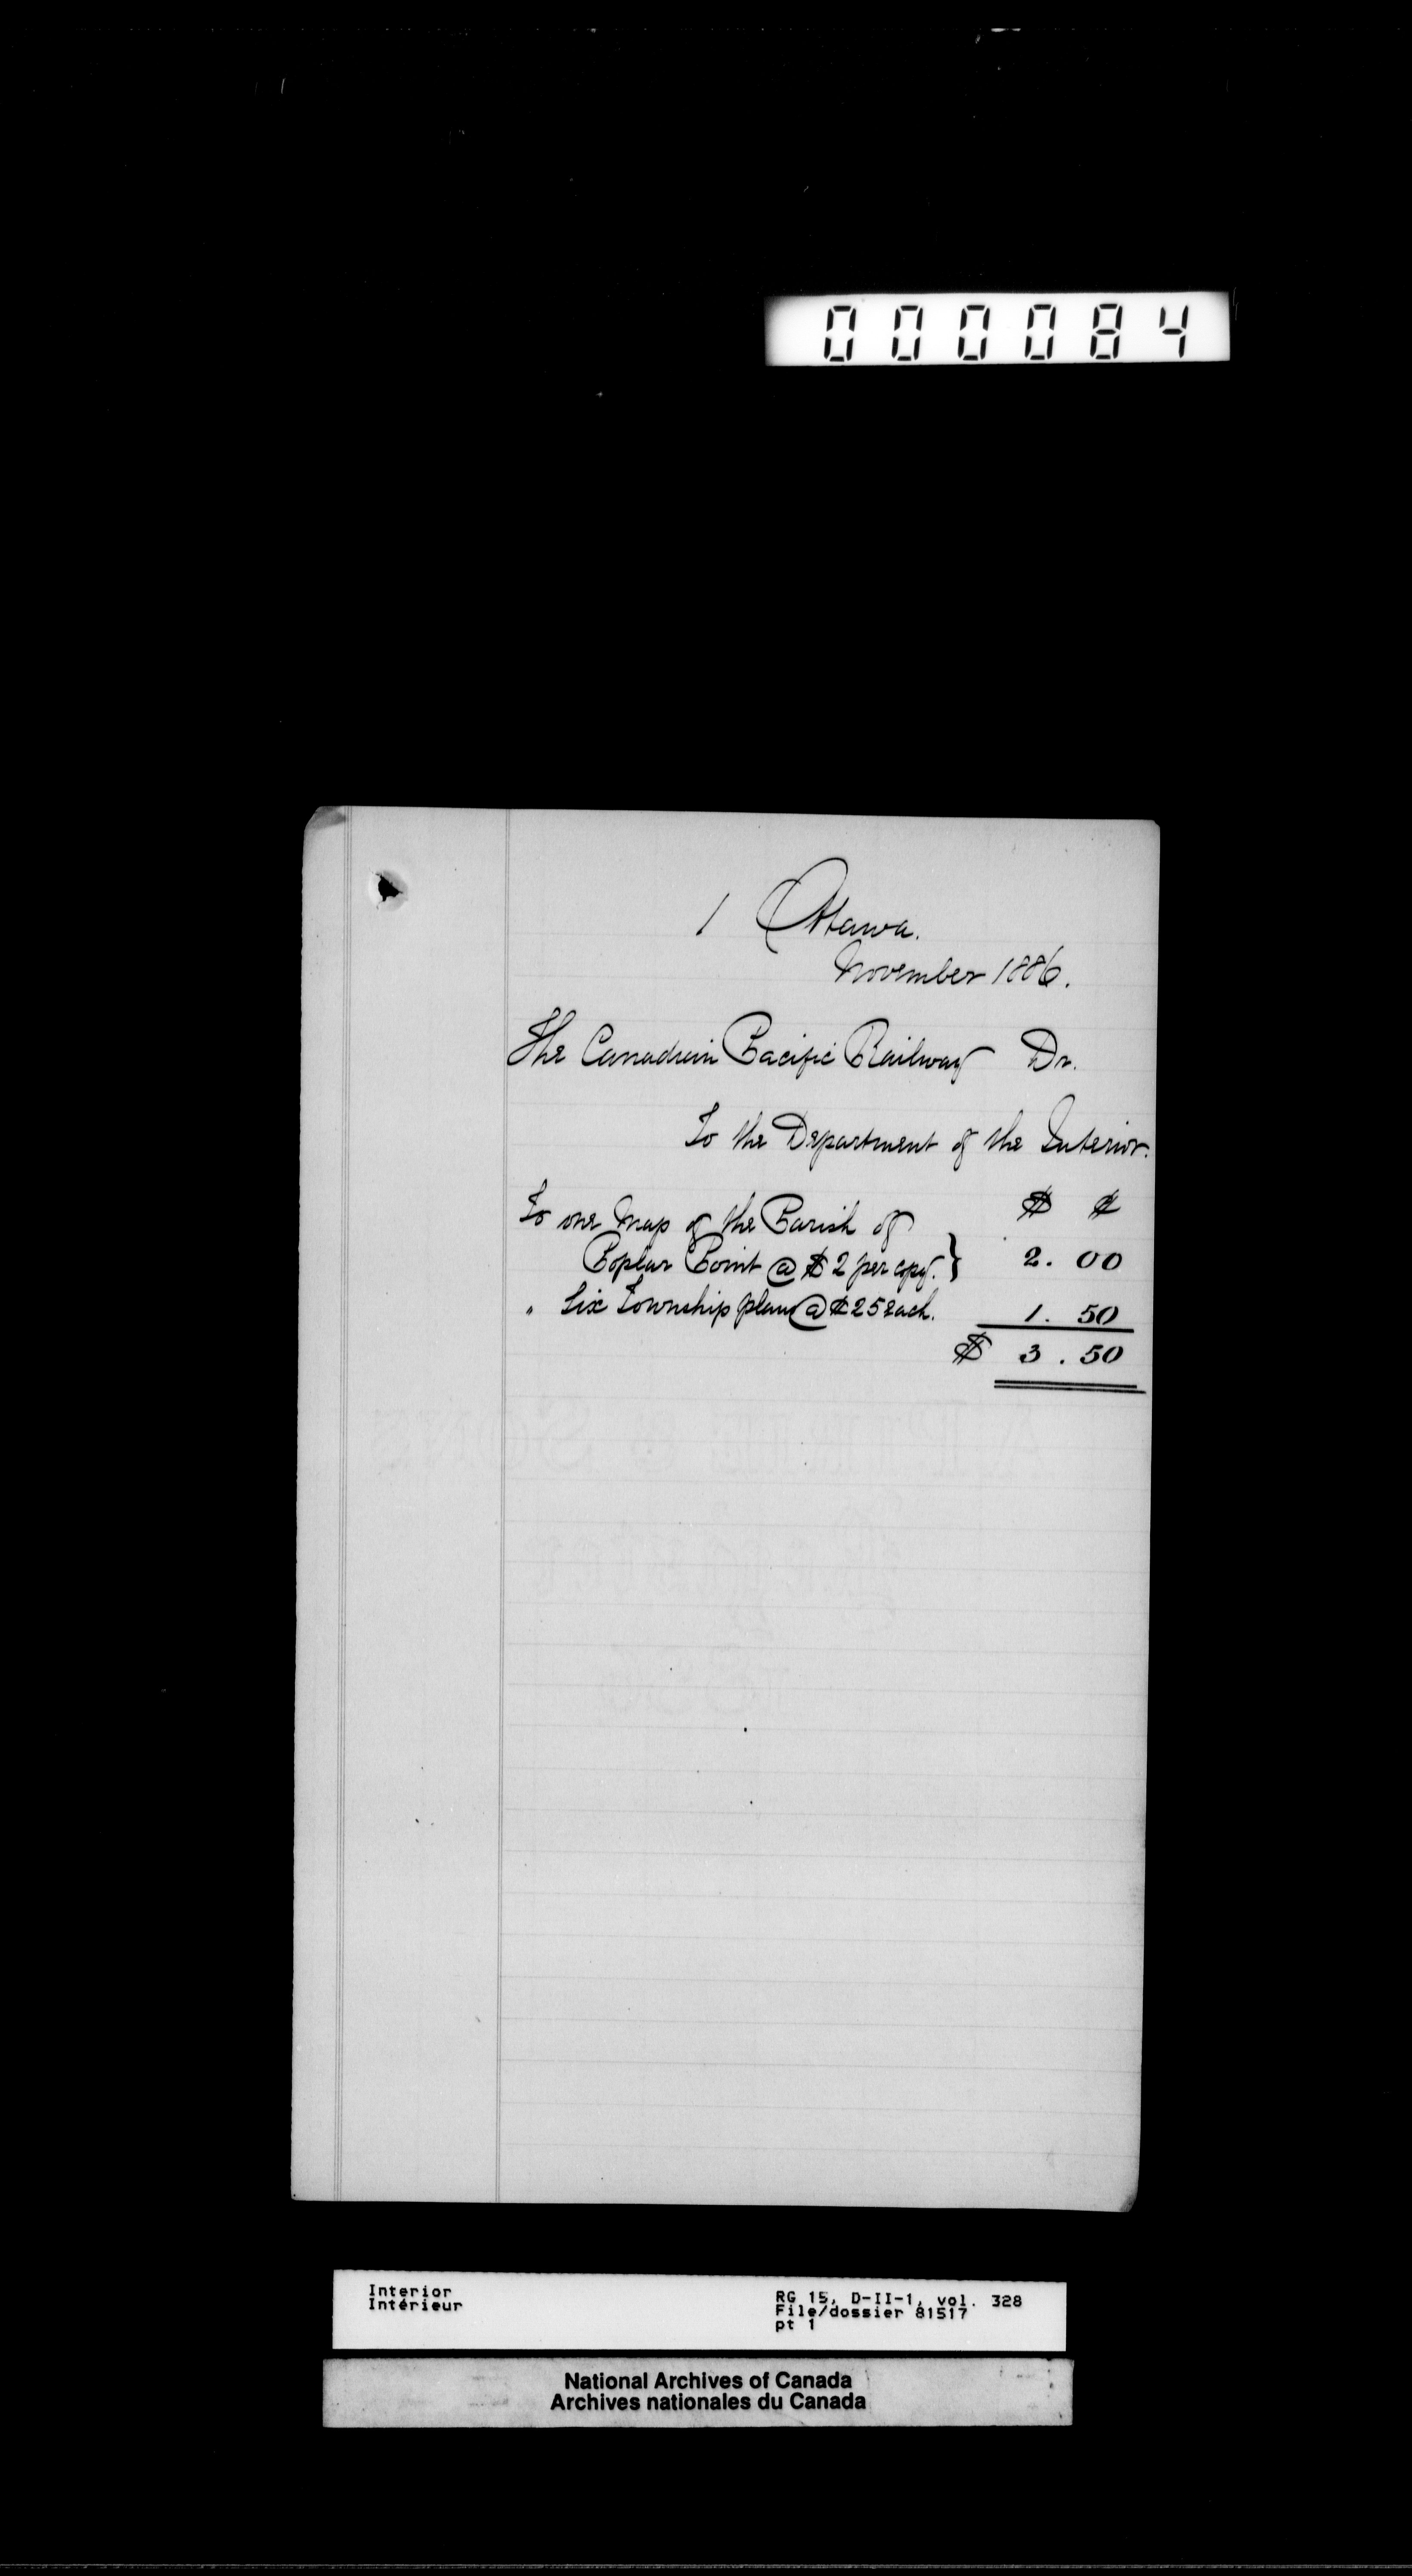 000084
1 Ottawa.
November 1886.
The Canadian Pacific Railway Dr.
To the Department of the Interior.
$ ¢
To one Map of the Parish of
Poplar Point @ $2 per copy. } 2.00
" Six Township plans @ ¢25 each. 1.50
$ 3.50
Interior
Intérieur
RG 15, D-II-1, vol. 328
File/dossier 81517
pt 1
National Archives of Canada
Archives nationales du Canada